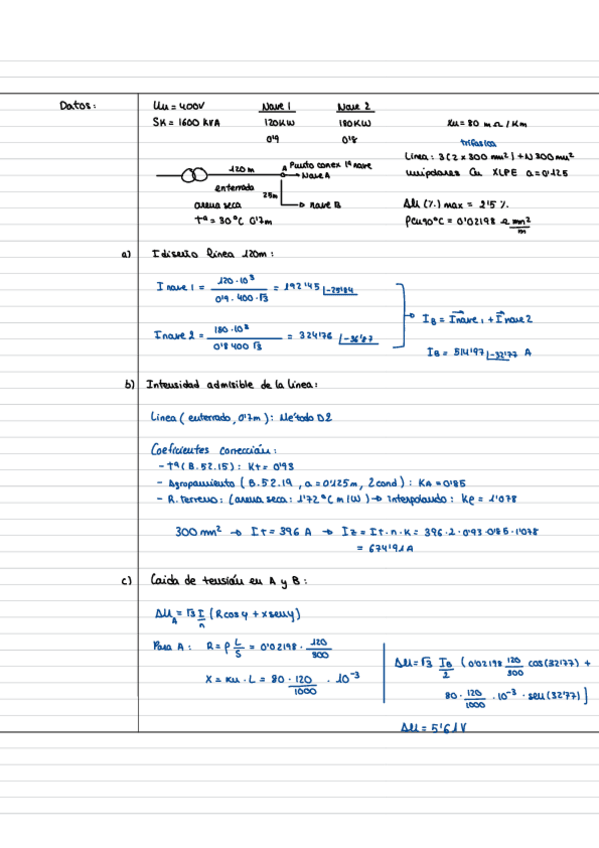 Datos: Uu = 400V Nave 1 Nave 2
SK = 1600 kVA 120KW 180KW Xu = 80 mΩ / Km
0'9 0'8 trifasica
Linea: 3(2 x 300 mm²) + N 300 mm²
120 m A Punto conex 1ª nave
Nave A unipolares Cu XLPE a = 0'125
enterrado 25m
arena seca nave B ΔU (%) max = 2'5 %
Tª = 30 ºC 0'7m ρCu90ºC = 0'02198 Ω mm²/m
a) I diseño linea 120m:
I nave 1 = 120·10³ / 0'9 · 400 · √3 = 192'45 |-25'84
I_B = Inave 1 + Inave 2
I nave 2 = 180·10³ / 0'8 400 √3 = 324'76 |-36'87
I_B = 514'97 |-32'77 A
b) Intensidad admisible de la linea:
Linea ( enterrado, 0'7m ): Método D2
Coeficientes corrección:
- Tª ( B.52.15): Kt = 0'93
- Agrupamiento ( B.52.19 , a = 0'125m, 2cond ) : KA = 0'85
- R. terreno: (arena seca: 1'72 ºC m/W) → Interpolando: Ke = 1'078
300 mm² → It = 396 A → Iz = It · n · K = 396 · 2 · 0'93 · 0'85 · 1'078
= 674'91 A
c) Caida de tensión en A y B:
ΔU_A = √3 I/n ( R cos φ + x sen φ)
Para A: R = ρ L/S = 0'02198 · 120/300
X = Xu · L = 80 · 120/1000 · 10⁻³
ΔU = √3 I_B/2 ( 0'02198 120/300 cos (32'77) +
80 · 120/1000 · 10⁻³ · sen (32'77) ]
ΔU = 5'61 V